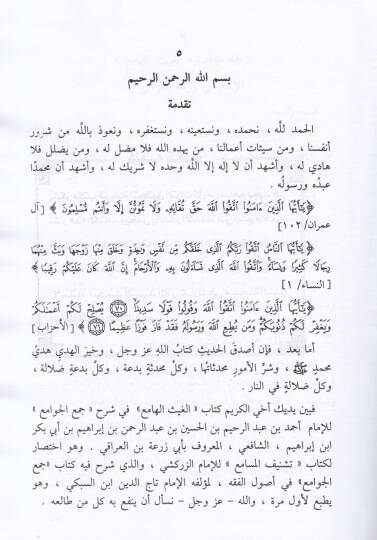 ٥
بسم الله الرحمن الرحيم
تقدمة
الحمد للّه ، نحمده ، ونستعينه ، ونستغفره ، ونعوذ باللّه من شرور
أنفسنا ، ومن سيئات أعمالنا ، من يهده الله فلا مضل له ، ومن يضلل فلا
هادي له ، وأشهد أن لا إله إلا اللّه وحده لا شريك له ، وأشهد أن محمدًا
عبدُه ورسولُه .
﴿ يَٰٓأَيُّهَا ٱلَّذِينَ ءَامَنُوا۟ ٱتَّقُوا۟ ٱللَّهَ حَقَّ تُقَاتِهِۦ وَلَا تَمُوتُنَّ إِلَّا وَأَنتُم مُّسْلِمُونَ ﴾ [آل
عمران/١٠٢]
﴿ يَٰٓأَيُّهَا ٱلنَّاسُ ٱتَّقُوا۟ رَبَّكُمُ ٱلَّذِى خَلَقَكُم مِّن نَّفْسٍ وَٰحِدَةٍ وَخَلَقَ مِنْهَا زَوْجَهَا وَبَثَّ مِنْهُمَا
رِجَالًا كَثِيرًا وَنِسَآءً وَٱتَّقُوا۟ ٱللَّهَ ٱلَّذِى تَسَآءَلُونَ بِهِۦ وَٱلْأَرْحَامَ إِنَّ ٱللَّهَ كَانَ عَلَيْكُمْ رَقِيبًا ﴾
[النساء/١]
﴿ يَٰٓأَيُّهَا ٱلَّذِينَ ءَامَنُوا۟ ٱتَّقُوا۟ ٱللَّهَ وَقُولُوا۟ قَوْلًا سَدِيدًا ٧٠ يُصْلِحْ لَكُمْ أَعْمَٰلَكُمْ
وَيَغْفِرْ لَكُمْ ذُنُوبَكُمْ وَمَن يُطِعِ ٱللَّهَ وَرَسُولَهُۥ فَقَدْ فَازَ فَوْزًا عَظِيمًا ٧١ ﴾ [الأحزاب]
أما بعد ، فإن أصدقَ الحديثِ كتابُ اللهِ عز وجل ، وخيرَ الهدي هديُ
محمدٍ ﷺ ، وشرَّ الأمورِ محدثاتُها ، وكلَّ محدثةٍ بدعة ، وكلَّ بدعةٍ ضلالة ،
وكلَّ ضلالةٍ في النار .
فبين يديك أخي الكريم كتاب « الغيث الهامع » في شرح « جمع الجوامع »
للإمام أحمد بن عبد الرحيم بن الحسين بن عبد الرحمن بن إبراهيم بن أبي بكر
ابن إبراهيم ، الشافعي ، المعروف بأبي زرعة بن العراقي . وهو اختصار
لكتاب « تشنيف المسامع » للإمام الزركشي ، والذي شرح فيه كتاب «جمع
الجوامع» في أصول الفقه ، لمؤلفه الإمام تاج الدين ابن السبكي ، وهو
يطبع لأول مرة ، والله - عز وجل - نسأل أن ينفع به كل من طالعه .